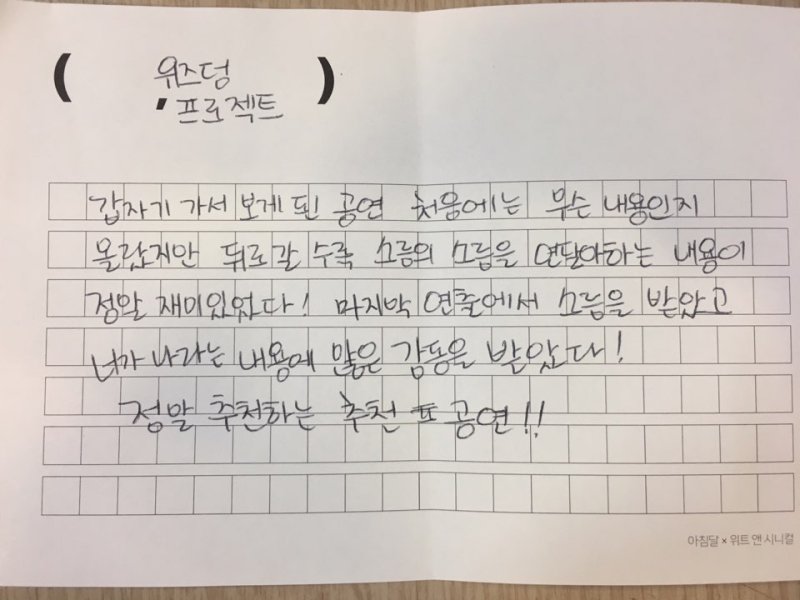 ( 위즈덤 )
프로젝트
갑자기 가서 보게 된 공연 처음에는 무슨 내용인지
몰랐지만 뒤로 갈 수록 소름의 소름을 연달아하는 내용이
정말 재미있었다! 마지막 연출에서 소름을 받았고
너가 나라는 내용에 많은 감동을 받았다!
정말 추천하는 추천 공연!!
아침달 × 위트 앤 시니컬